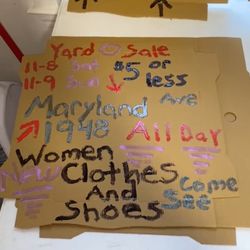 Yard Sale
11-8 Sat $5 or
11-9 Sun less
Maryland Ave
1948 All Day
Women
New Clothes Come
And See
Shoes